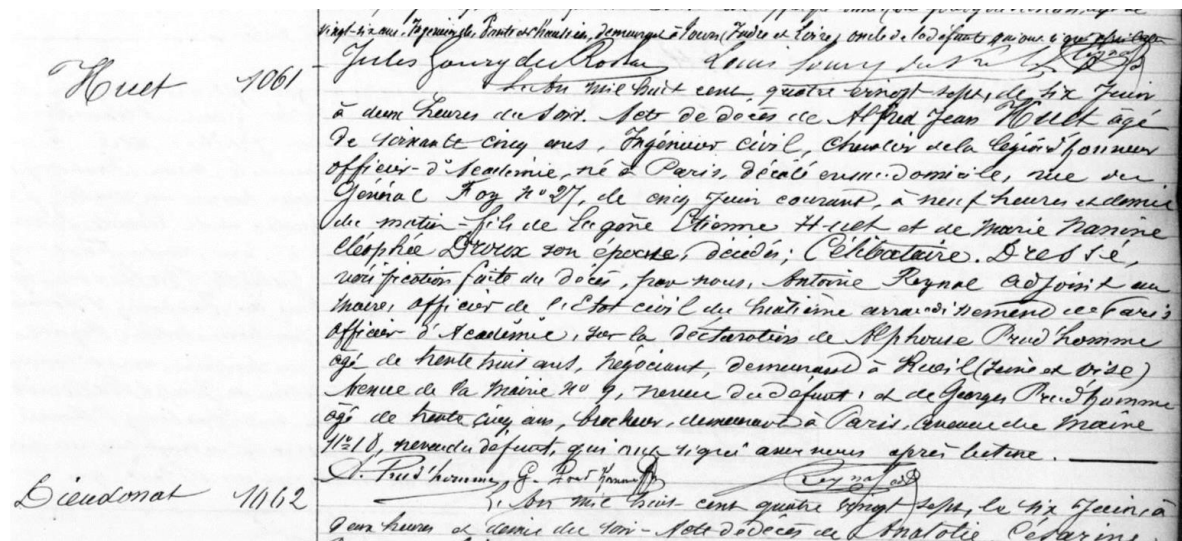 vingt-six ans, Ingénieur des Ponts et Chaussées, demeurant à Tours (Indre et Loire) oncle de la défunte, qui ont signé
Jules Goury du Roslan Louis Goury du Reynal
Huet 1061
L'an mil huit cent quatre vingt sept, le six Juin
à deux heures du soir. Acte de décès de Alfred Jean Huet âgé
de soixante cinq ans, Ingénieur civil, Chevalier de la légion d'honneur
officier d'Académie, né à Paris, décédé en son domicile, rue du
Général Foy nº 27, le cinq Juin courant, à neuf heures et demie
du matin - fils de Etienne Huet et de Marie Nanine
Cléophée Droux son épouse, décédés; Célibataire. Dressé,
vérification faite du décès, par nous, Antoine Reynal adjoint au
maire, officier de l'Etat civil du huitième arrondissement de Paris
officier d'Académie, sur la déclaration de Alphonse Prud'homme
âgé de trente huit ans, négociant, demeurant à Rueil (Seine et Oise)
Avenue de la Mairie nº 9, neveu du défunt; et de Georges Prud'homme
âgé de trente cinq ans, brocheur, demeurant à Paris, avenue du Maine
nº 10, neveu du défunt, qui ont signé avec nous après lecture.
A. Prud'homme G. Prud'homme Reynal
Dieudonat 1062
L'an mil huit cent quatre vingt sept, le six Juin à
deux heures et demie du soir - Acte de décès de Anatolie Césarine